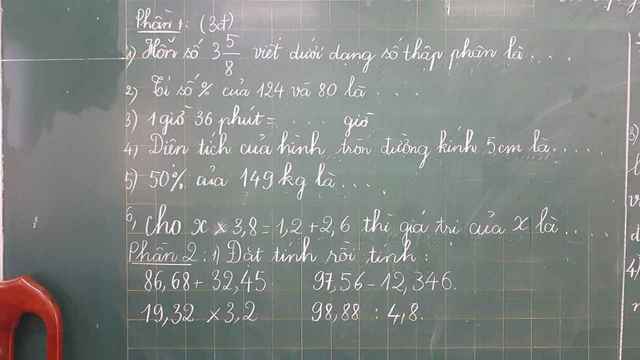 Phần 1: (3đ)
1) Hỗn số 3 5/8 viết dưới dạng số thập phân là ....
2) Tỉ số % của 124 và 80 là ....
3) 1 giờ 36 phút = .... giờ
4) Diện tích của hình tròn đường kính 5cm là .....
5) 50% của 149 kg là ....
6, Cho x x 3,8 = 1,2 + 2,6 thì giá trị của x là ....
Phần 2: 1) Đặt tính rồi tính:
86,68 + 32,45 97,56 - 12,346.
19,32 x 3,2 98,88 : 4,8.